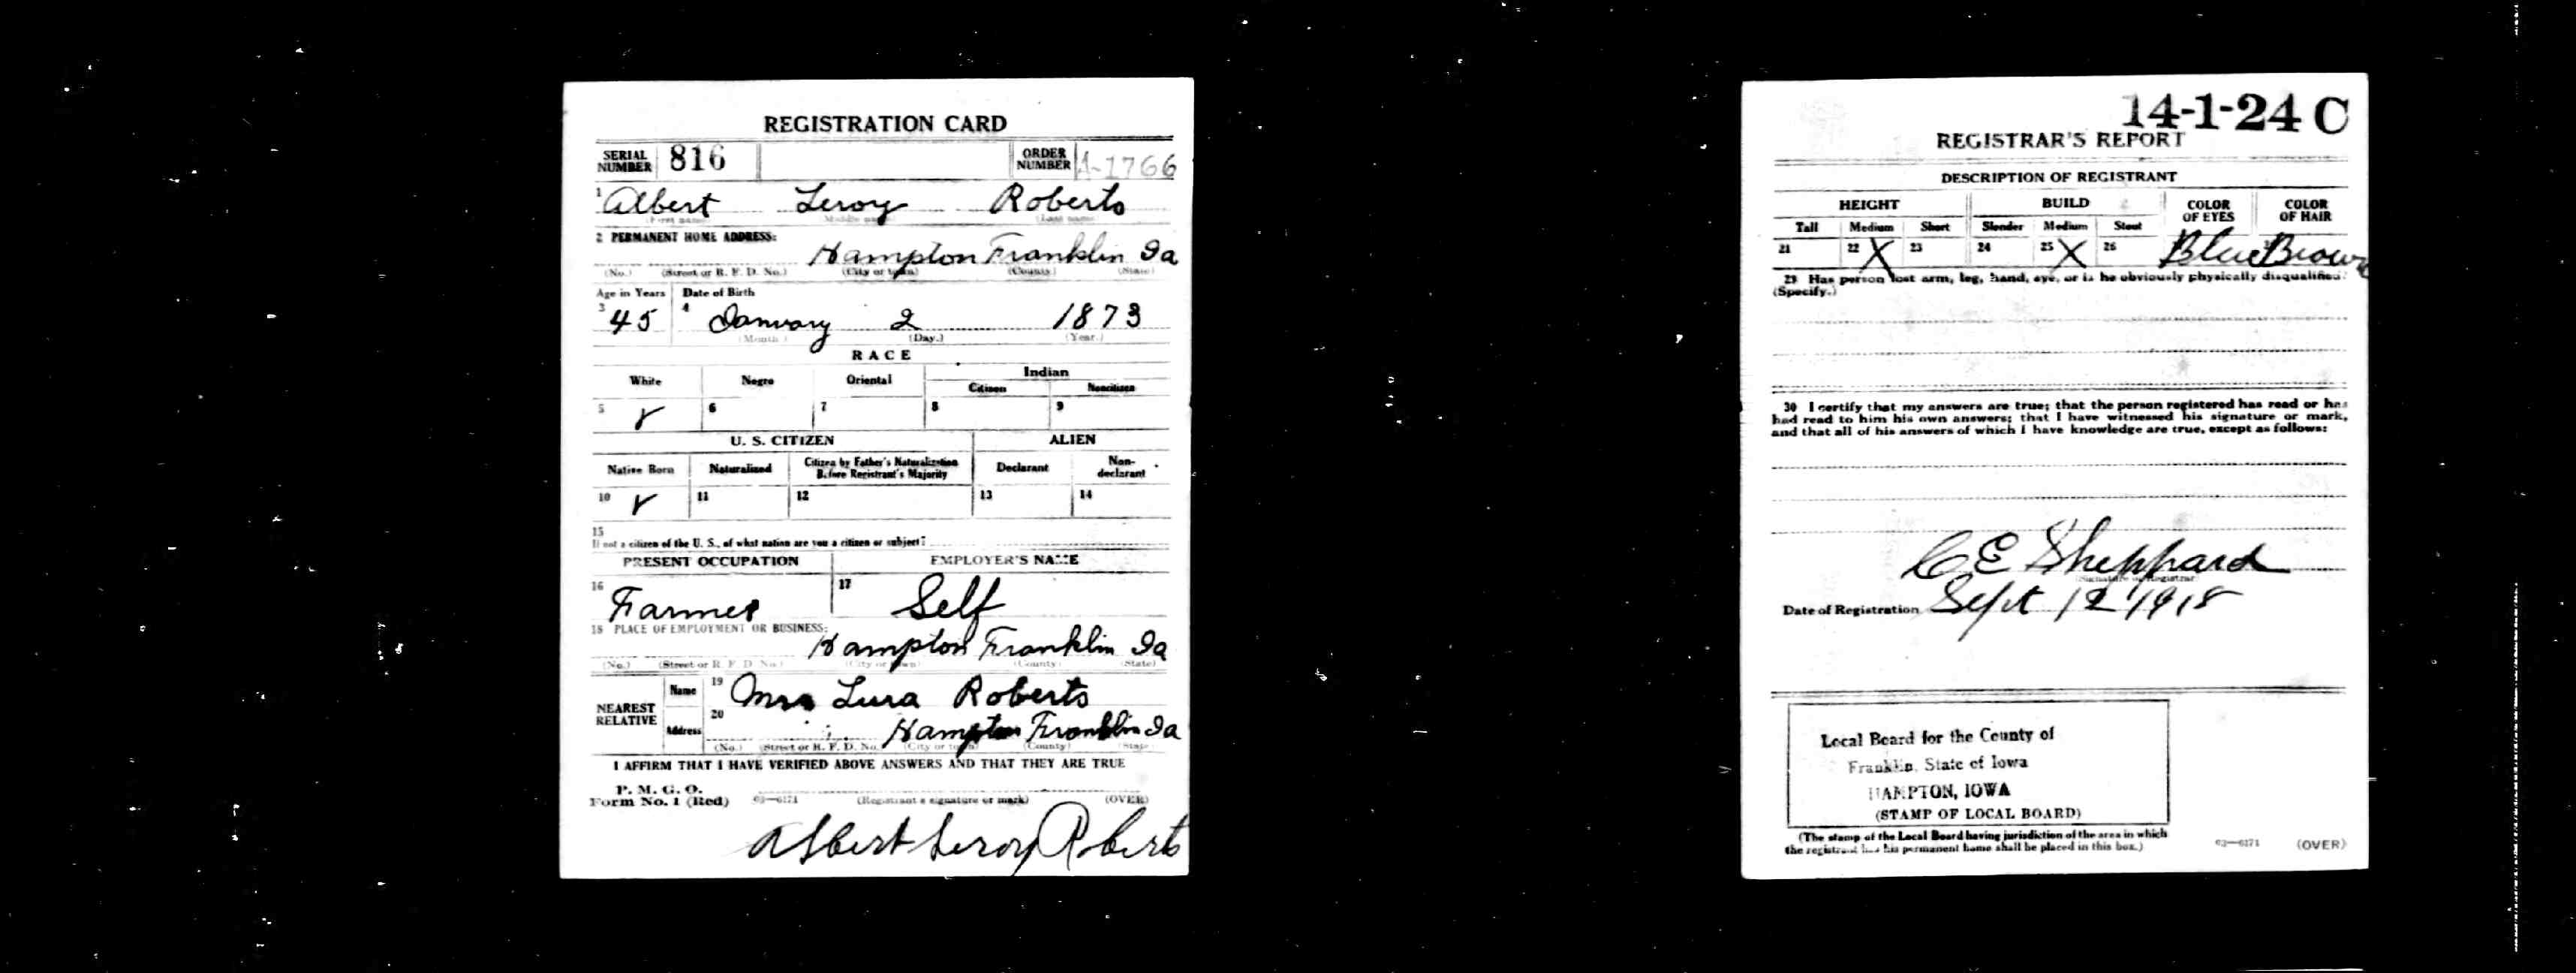 REGISTRATION CARD
SERIAL NUMBER 816 ORDER NUMBER A-1766
1 Albert Leroy Roberts
(First name) (Middle name) (Last name)
2 PERMANENT HOME ADDRESS:
Hampton Franklin Ia
(No.) (Street or R. F. D. No.) (City or town) (County) (State)
Age in Years Date of Birth
3 45 4 January 2 1873
(Month.) (Day.) (Year.)
RACE
White Negro Oriental Indian
Citizen Noncitizen
5 6 7 8 9
U. S. CITIZEN ALIEN
Native Born Naturalized Citizen by Father's Naturalization Before Registrant's Majority Declarant Non-declarant
10 11 12 13 14
15
If not a citizen of the U. S., of what nation are you a citizen or subject?
PRESENT OCCUPATION EMPLOYER'S NAME
16 Farmer 17 Self
18 PLACE OF EMPLOYMENT OR BUSINESS:
Hampton Franklin Ia
(No.) (Street or R. F. D. No.) (City or town) (County) (State)
NEAREST RELATIVE Name 19 Mrs Lura Roberts
Address 20 Hampton Franklin Ia
(No.) (Street or R. F. D. No.) (City or town) (County) (State)
I AFFIRM THAT I HAVE VERIFIED ABOVE ANSWERS AND THAT THEY ARE TRUE
P. M. G. O.
Form No. 1 (Red) 03—6171 (Registrant's signature or mark) (OVER)
Albert Leroy Roberts
14-1-24 C
REGISTRAR'S REPORT
DESCRIPTION OF REGISTRANT
HEIGHT BUILD COLOR OF EYES COLOR OF HAIR
Tall Medium Short Slender Medium Stout
21 22 X 23 24 25 X 26 Blue Brown
29 Has person lost arm, leg, hand, eye, or is he obviously physically disqualified?
(Specify.)
30 I certify that my answers are true; that the person registered has read or has
had read to him his own answers; that I have witnessed his signature or mark,
and that all of his answers of which I have knowledge are true, except as follows:
C E Sheppard
(Signature of Registrar)
Date of Registration Sept 12 1918
Local Board for the County of
Franklin, State of Iowa
HAMPTON, IOWA
(STAMP OF LOCAL BOARD)
(The stamp of the Local Board having jurisdiction of the area in which
the registrant has his permanent home shall be placed in this box.)
03—6171 (OVER)